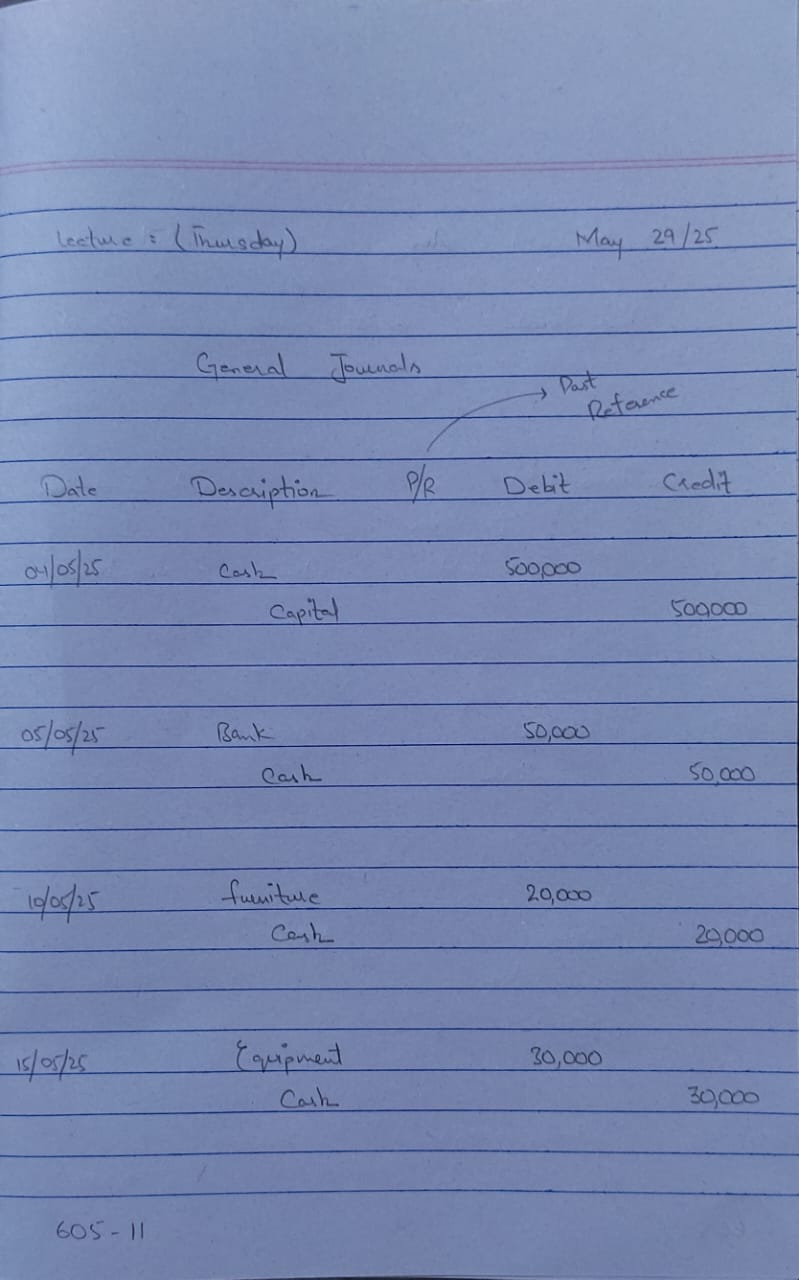 Lecture : (Thursday) May 29/25
General Journals
Past
Reference
Date Description P/R Debit Credit
04/05/25 Cash 500,000
Capital 500,000
05/05/25 Bank 50,000
Cash 50,000
10/05/25 furniture 20,000
Cash 20,000
15/05/25 Equipment 30,000
Cash 30,000
605-11